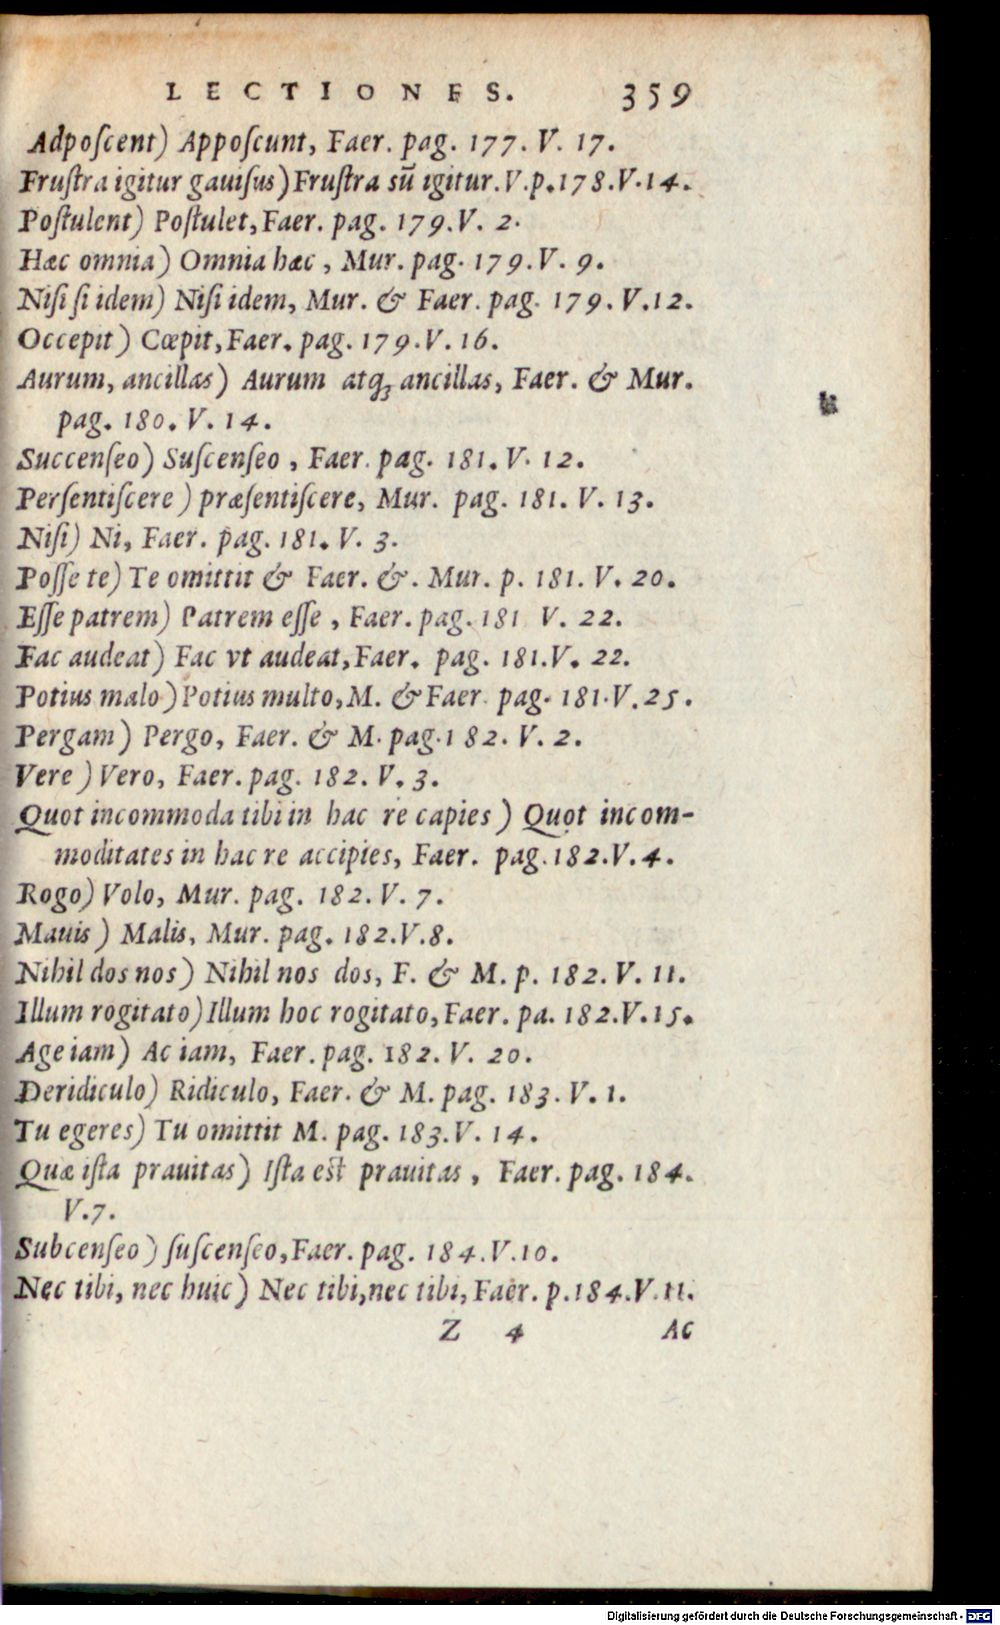 LECTIONES. 359
Adpoſcent) Appoſcunt, Faer. pag. 177. V. 17.
Fruſtra igitur gauiſus) Fruſtra sū igitur. V. p. 178. V. 14.
Poſtulent) Poſtulet, Faer. pag. 179. V. 2.
Hæc omnia) Omnia hæc, Mur. pag. 179. V. 9.
Niſi ſi idem) Niſi idem, Mur. & Faer. pag. 179. V. 12.
Occepit) Cœpit, Faer. pag. 179. V. 16.
Aurum, ancillas) Aurum atq; ancillas, Faer. & Mur.
pag. 180. V. 14.
Succenſeo) Suſcenſeo, Faer. pag. 181. V. 12.
Perſentiſcere) præſentiſcere, Mur. pag. 181. V. 13.
Niſi) Ni, Faer. pag. 181. V. 3.
Poſſe te) Te omittit & Faer. &. Mur. p. 181. V. 20.
Eſſe patrem) Patrem eſſe, Faer. pag. 181 V. 22.
Fac audeat) Fac vt audeat, Faer. pag. 181. V. 22.
Potius malo) Potius multo, M. & Faer. pag. 181. V. 25.
Pergam) Pergo, Faer. & M. pag. 182. V. 2.
Vere) Vero, Faer. pag. 182. V. 3.
Quot incommoda tibi in hac re capies) Quot incom-
moditates in hac re accipies, Faer. pag. 182. V. 4.
Rogo) Volo, Mur. pag. 182. V. 7.
Mauis) Malis, Mur. pag. 182. V. 8.
Nihil dos nos) Nihil nos dos, F. & M. p. 182. V. 11.
Illum rogitato) Illum hoc rogitato, Faer. pa. 182. V. 15.
Age iam) Ac iam, Faer. pag. 182. V. 20.
Deridiculo) Ridiculo, Faer. & M. pag. 183. V. 1.
Tu egeres) Tu omittit M. pag. 183. V. 14.
Quæ iſta prauitas) Iſta eſt prauitas, Faer. pag. 184.
V. 7.
Subcenſeo) ſuſcenſeo, Faer. pag. 184. V. 10.
Nec tibi, nec huic) Nec tibi, nec tibi, Faer. p. 184. V. 11.
Z 4 Ac
Digitalisierung gefördert durch die Deutsche Forschungsgemeinschaft - DFG